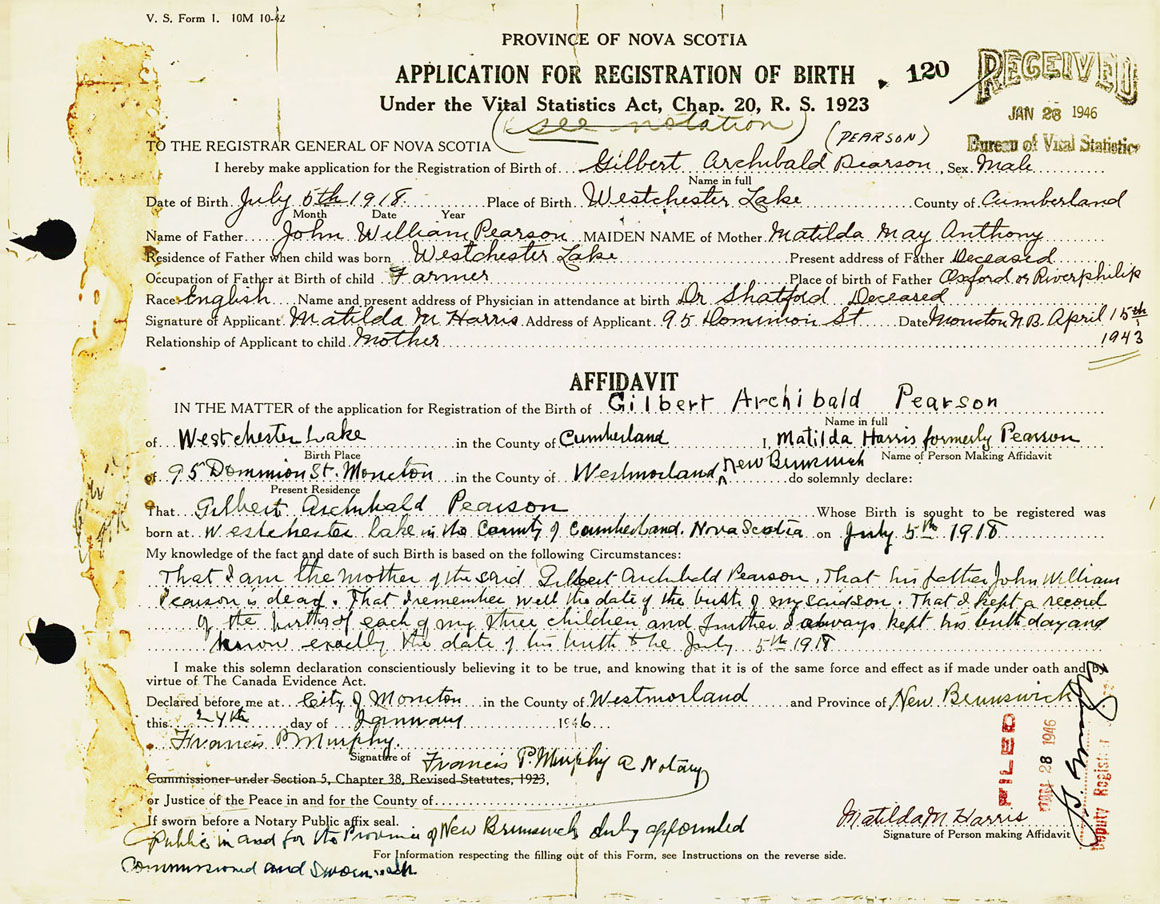 V. S. Form 1. 10M 10-42
PROVINCE OF NOVA SCOTIA
APPLICATION FOR REGISTRATION OF BIRTH 120
RECEIVED
JAN 28 1946
Bureau of Vital Statistics
Under the Vital Statistics Act, Chap. 20, R. S. 1923
(see notation)
(PEARSON)
TO THE REGISTRAR GENERAL OF NOVA SCOTIA
I hereby make application for the Registration of Birth of Gilbert Archibald Pearson Sex Male
Name in full
Date of Birth July 5th 1918 Place of Birth Westchester Lake County of Cumberland
Month Date Year
Name of Father John William Pearson MAIDEN NAME of Mother Matilda May Anthony
Residence of Father when child was born Westchester Lake Present address of Father Deceased
Occupation of Father at Birth of child Farmer Place of birth of Father Oxford or Riverphilip
Race English Name and present address of Physician in attendance at birth Dr Shatford Deceased
Signature of Applicant Matilda M Harris Address of Applicant 95 Dominion St Date Moncton N.B. April 15th
1943
Relationship of Applicant to child Mother
AFFIDAVIT
IN THE MATTER of the application for Registration of the Birth of Gilbert Archibald Pearson
Name in full
of Westchester Lake in the County of Cumberland I, Matilda Harris formerly Pearson
Birth Place Name of Person Making Affidavit
of 95 Dominion St. Moncton in the County of Westmorland New Brunswick do solemnly declare:
Present Residence
That Gilbert Archibald Pearson Whose Birth is sought to be registered was
born at Westchester Lake in the County of Cumberland. Nova Scotia on July 5th 1918
My knowledge of the fact and date of such Birth is based on the following Circumstances:
That I am the mother of the said Gilbert Archibald Pearson. That his father John William
Pearson is dead. That I remember well the date of the birth of my said son. That I kept a record
of the births of each of my three children and further I always kept his birthday and
know exactly the date of his birth the July 5th 1918
I make this solemn declaration conscientiously believing it to be true, and knowing that it is of the same force and effect as if made under oath and by
virtue of The Canada Evidence Act.
Declared before me at City of Moncton in the County of Westmorland and Province of New Brunswick
this 24th day of January 1946
Francis P Murphy
Signature of Francis P. Murphy a Notary
Commissioner under Section 5, Chapter 38, Revised Statutes, 1923,
or Justice of the Peace in and for the County of
If sworn before a Notary Public affix seal.
Public in and for the Province of New Brunswick duly appointed
Commissioned and Sworn
Matilda M Harris
Signature of Person making Affidavit
For Information respecting the filling out of this Form, see Instructions on the reverse side.
FILED
JAN 28 1946
Deputy Registrar